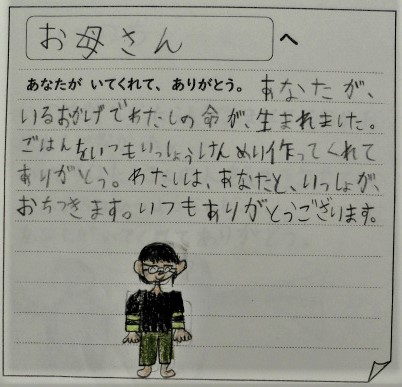 お母さん へ
あなたが いてくれて、ありがとう。 あなたが、
いるおかげでわたしの命が、生まれました。
ごはんをいつもいっしょうけんめい作ってくれて
ありがとう。わたしは、あなたと、いっしょが、
おちつきます。いつもありがとうございます。